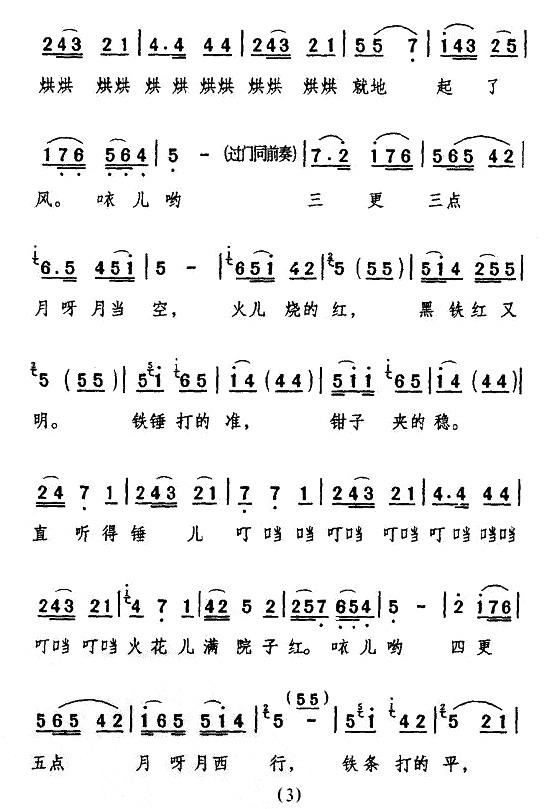 2 4 3 2 1 | 4 . 4 4 4 | 2 4 3 2 1 | 5 5 7 | 1 4 3 2 5 |
烘烘 烘烘 烘 烘 烘烘 烘烘 烘烘 就地 起 了
1 7 6 5 6 4 | 5 - (过门同前奏) | 7 . 2 1 7 6 | 5 6 5 4 2 |
风。 咴 儿 哟 三 更 三点
6 . 5 4 5 1 | 5 - | 6 5 1 4 2 | 5 (5 5) | 5 1 4 2 5 5 |
月 呀 月当 空, 火儿 烧的 红, 黑 铁 红 又
5 (5 5) | 5 1 6 5 | 1 4 (4 4) | 5 1 1 6 5 | 1 4 (4 4) |
明。 铁锤 打的 准, 钳子 夹的 稳。
2 4 7 1 | 2 4 3 2 1 | 7 7 1 | 2 4 3 2 1 | 4 . 4 4 4 |
直 听 得 锤 儿 叮 当 当 叮当 叮当 叮 当 当当
2 4 3 2 1 | 4 7 1 | 4 2 5 2 | 2 5 7 6 5 4 | 5 - | 2 1 7 6 |
叮当 叮当 火 花 儿 满 院 子 红。 咴 儿 哟 四 更
5 6 5 4 2 | 1 6 5 5 1 4 | 5 (5 5) - | 5 1 4 2 | 5 2 1 |
五点 月 呀 月西 行, 铁条 打的 平,
(3)